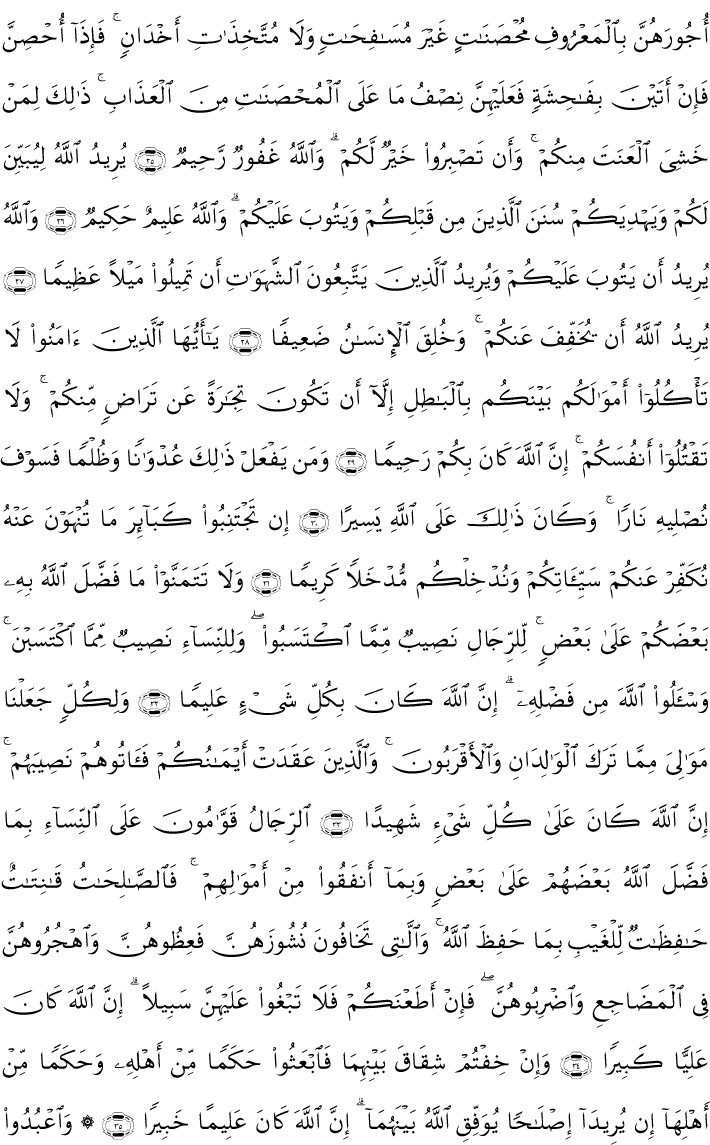 أُجُورَهُنَّ بِٱلْمَعْرُوفِ مُحْصَنَٰتٍ غَيْرَ مُسَٰفِحَٰتٍ وَلَا مُتَّخِذَٰتِ أَخْدَانٍ ۚ فَإِذَآ أُحْصِنَّ
فَإِنْ أَتَيْنَ بِفَٰحِشَةٍ فَعَلَيْهِنَّ نِصْفُ مَا عَلَى ٱلْمُحْصَنَٰتِ مِنَ ٱلْعَذَابِ ۚ ذَٰلِكَ لِمَنْ
خَشِىَ ٱلْعَنَتَ مِنكُمْ ۚ وَأَن تَصْبِرُوا۟ خَيْرٌ لَّكُمْ ۗ وَٱللَّهُ غَفُورٌ رَّحِيمٌ ٢٥ يُرِيدُ ٱللَّهُ لِيُبَيِّنَ
لَكُمْ وَيَهْدِيَكُمْ سُنَنَ ٱلَّذِينَ مِن قَبْلِكُمْ وَيَتُوبَ عَلَيْكُمْ ۗ وَٱللَّهُ عَلِيمٌ حَكِيمٌ ٢٦ وَٱللَّهُ
يُرِيدُ أَن يَتُوبَ عَلَيْكُمْ وَيُرِيدُ ٱلَّذِينَ يَتَّبِعُونَ ٱلشَّهَوَٰتِ أَن تَمِيلُوا۟ مَيْلًا عَظِيمًا ٢٧
يُرِيدُ ٱللَّهُ أَن يُخَفِّفَ عَنكُمْ ۚ وَخُلِقَ ٱلْإِنسَٰنُ ضَعِيفًا ٢٨ يَٰٓأَيُّهَا ٱلَّذِينَ ءَامَنُوا۟ لَا
تَأْكُلُوٓا۟ أَمْوَٰلَكُم بَيْنَكُم بِٱلْبَٰطِلِ إِلَّآ أَن تَكُونَ تِجَٰرَةً عَن تَرَاضٍ مِّنكُمْ ۚ وَلَا
تَقْتُلُوٓا۟ أَنفُسَكُمْ ۚ إِنَّ ٱللَّهَ كَانَ بِكُمْ رَحِيمًا ٢٩ وَمَن يَفْعَلْ ذَٰلِكَ عُدْوَٰنًا وَظُلْمًا فَسَوْفَ
نُصْلِيهِ نَارًا ۚ وَكَانَ ذَٰلِكَ عَلَى ٱللَّهِ يَسِيرًا ٣٠ إِن تَجْتَنِبُوا۟ كَبَآئِرَ مَا تُنْهَوْنَ عَنْهُ
نُكَفِّرْ عَنكُمْ سَيِّـَٔاتِكُمْ وَنُدْخِلْكُم مُّدْخَلًا كَرِيمًا ٣١ وَلَا تَتَمَنَّوْا۟ مَا فَضَّلَ ٱللَّهُ بِهِۦ
بَعْضَكُمْ عَلَىٰ بَعْضٍ ۚ لِّلرِّجَالِ نَصِيبٌ مِّمَّا ٱكْتَسَبُوا۟ ۖ وَلِلنِّسَآءِ نَصِيبٌ مِّمَّا ٱكْتَسَبْنَ ۚ
وَسْـَٔلُوا۟ ٱللَّهَ مِن فَضْلِهِۦٓ ۗ إِنَّ ٱللَّهَ كَانَ بِكُلِّ شَىْءٍ عَلِيمًا ٣٢ وَلِكُلٍّ جَعَلْنَا
مَوَٰلِىَ مِمَّا تَرَكَ ٱلْوَٰلِدَانِ وَٱلْأَقْرَبُونَ ۚ وَٱلَّذِينَ عَقَدَتْ أَيْمَٰنُكُمْ فَـَٔاتُوهُمْ نَصِيبَهُمْ ۚ
إِنَّ ٱللَّهَ كَانَ عَلَىٰ كُلِّ شَىْءٍ شَهِيدًا ٣٣ ٱلرِّجَالُ قَوَّٰمُونَ عَلَى ٱلنِّسَآءِ بِمَا
فَضَّلَ ٱللَّهُ بَعْضَهُمْ عَلَىٰ بَعْضٍ وَبِمَآ أَنفَقُوا۟ مِنْ أَمْوَٰلِهِمْ ۚ فَٱلصَّٰلِحَٰتُ قَٰنِتَٰتٌ
حَٰفِظَٰتٌ لِّلْغَيْبِ بِمَا حَفِظَ ٱللَّهُ ۚ وَٱلَّٰتِى تَخَافُونَ نُشُوزَهُنَّ فَعِظُوهُنَّ وَٱهْجُرُوهُنَّ
فِى ٱلْمَضَاجِعِ وَٱضْرِبُوهُنَّ ۖ فَإِنْ أَطَعْنَكُمْ فَلَا تَبْغُوا۟ عَلَيْهِنَّ سَبِيلًا ۗ إِنَّ ٱللَّهَ كَانَ
عَلِيًّا كَبِيرًا ٣٤ وَإِنْ خِفْتُمْ شِقَاقَ بَيْنِهِمَا فَٱبْعَثُوا۟ حَكَمًا مِّنْ أَهْلِهِۦ وَحَكَمًا مِّنْ
أَهْلِهَآ إِن يُرِيدَآ إِصْلَٰحًا يُوَفِّقِ ٱللَّهُ بَيْنَهُمَآ ۗ إِنَّ ٱللَّهَ كَانَ عَلِيمًا خَبِيرًا ٣٥ ۞ وَٱعْبُدُوا۟